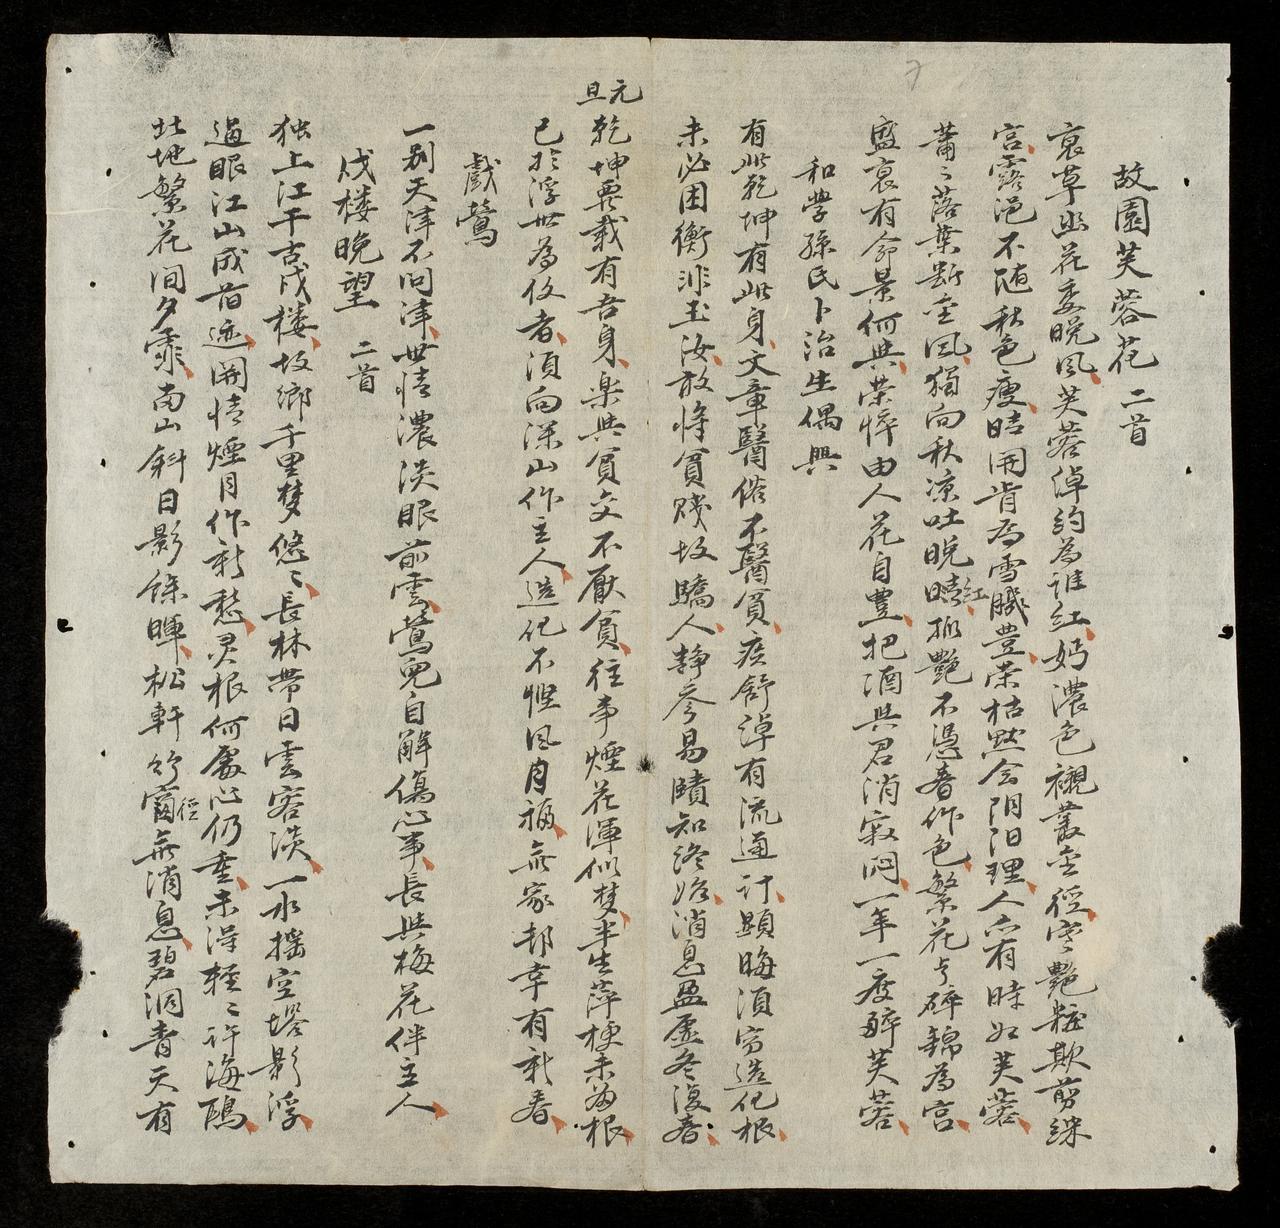 故園芙蓉花 二首
衰草幽花委晚風芙蓉淖約為誰紅嫣濃色襯叢金徑寒艷粧欺剪綵
宮露浥不随秋色瘦晴開肯為雪臓豊栄枯黙会阴阳理人亦有時如芙蓉
蕭〻落葉断金風獨向秋凉吐晚晴紅孤艷不憑春作色繁花与碎錦為宮
盛衰有侖景何與荣悴由人花自豊把酒與君消寂闷一年一度醉芙蓉
和學孫氏卜治生偶興
有此乾坤有此身文章醫俗不醫貧疾舒淖有流通计顕晦須穷造化根
未必困衡非玉汝敢将貧賤故驕人静参易賾知终始消息盈虚冬復春
元旦
乾坤要載有吾身楽與貧交不厭貧往事煙花渾似梦半生萍梗未為根
已於浮世為仅者須向深山作主人造化不慳風月福無家却幸有新春
戲鶯
一别天津不问津世情濃淡眼前雲鶯兒自解傷心事長與梅花伴主人
戍楼晚望 二首
独上江干古戍楼故郷千里梦悠〻長林带日雲容淡一水摇空塔影浮
過眼江山成昔迹開情煙月作新愁灵根何處心仍重未得輕〻许海鴎
北地繁花间夕霏南山斜日影馀暉松軒竹窗徑無消息碧洞青天有